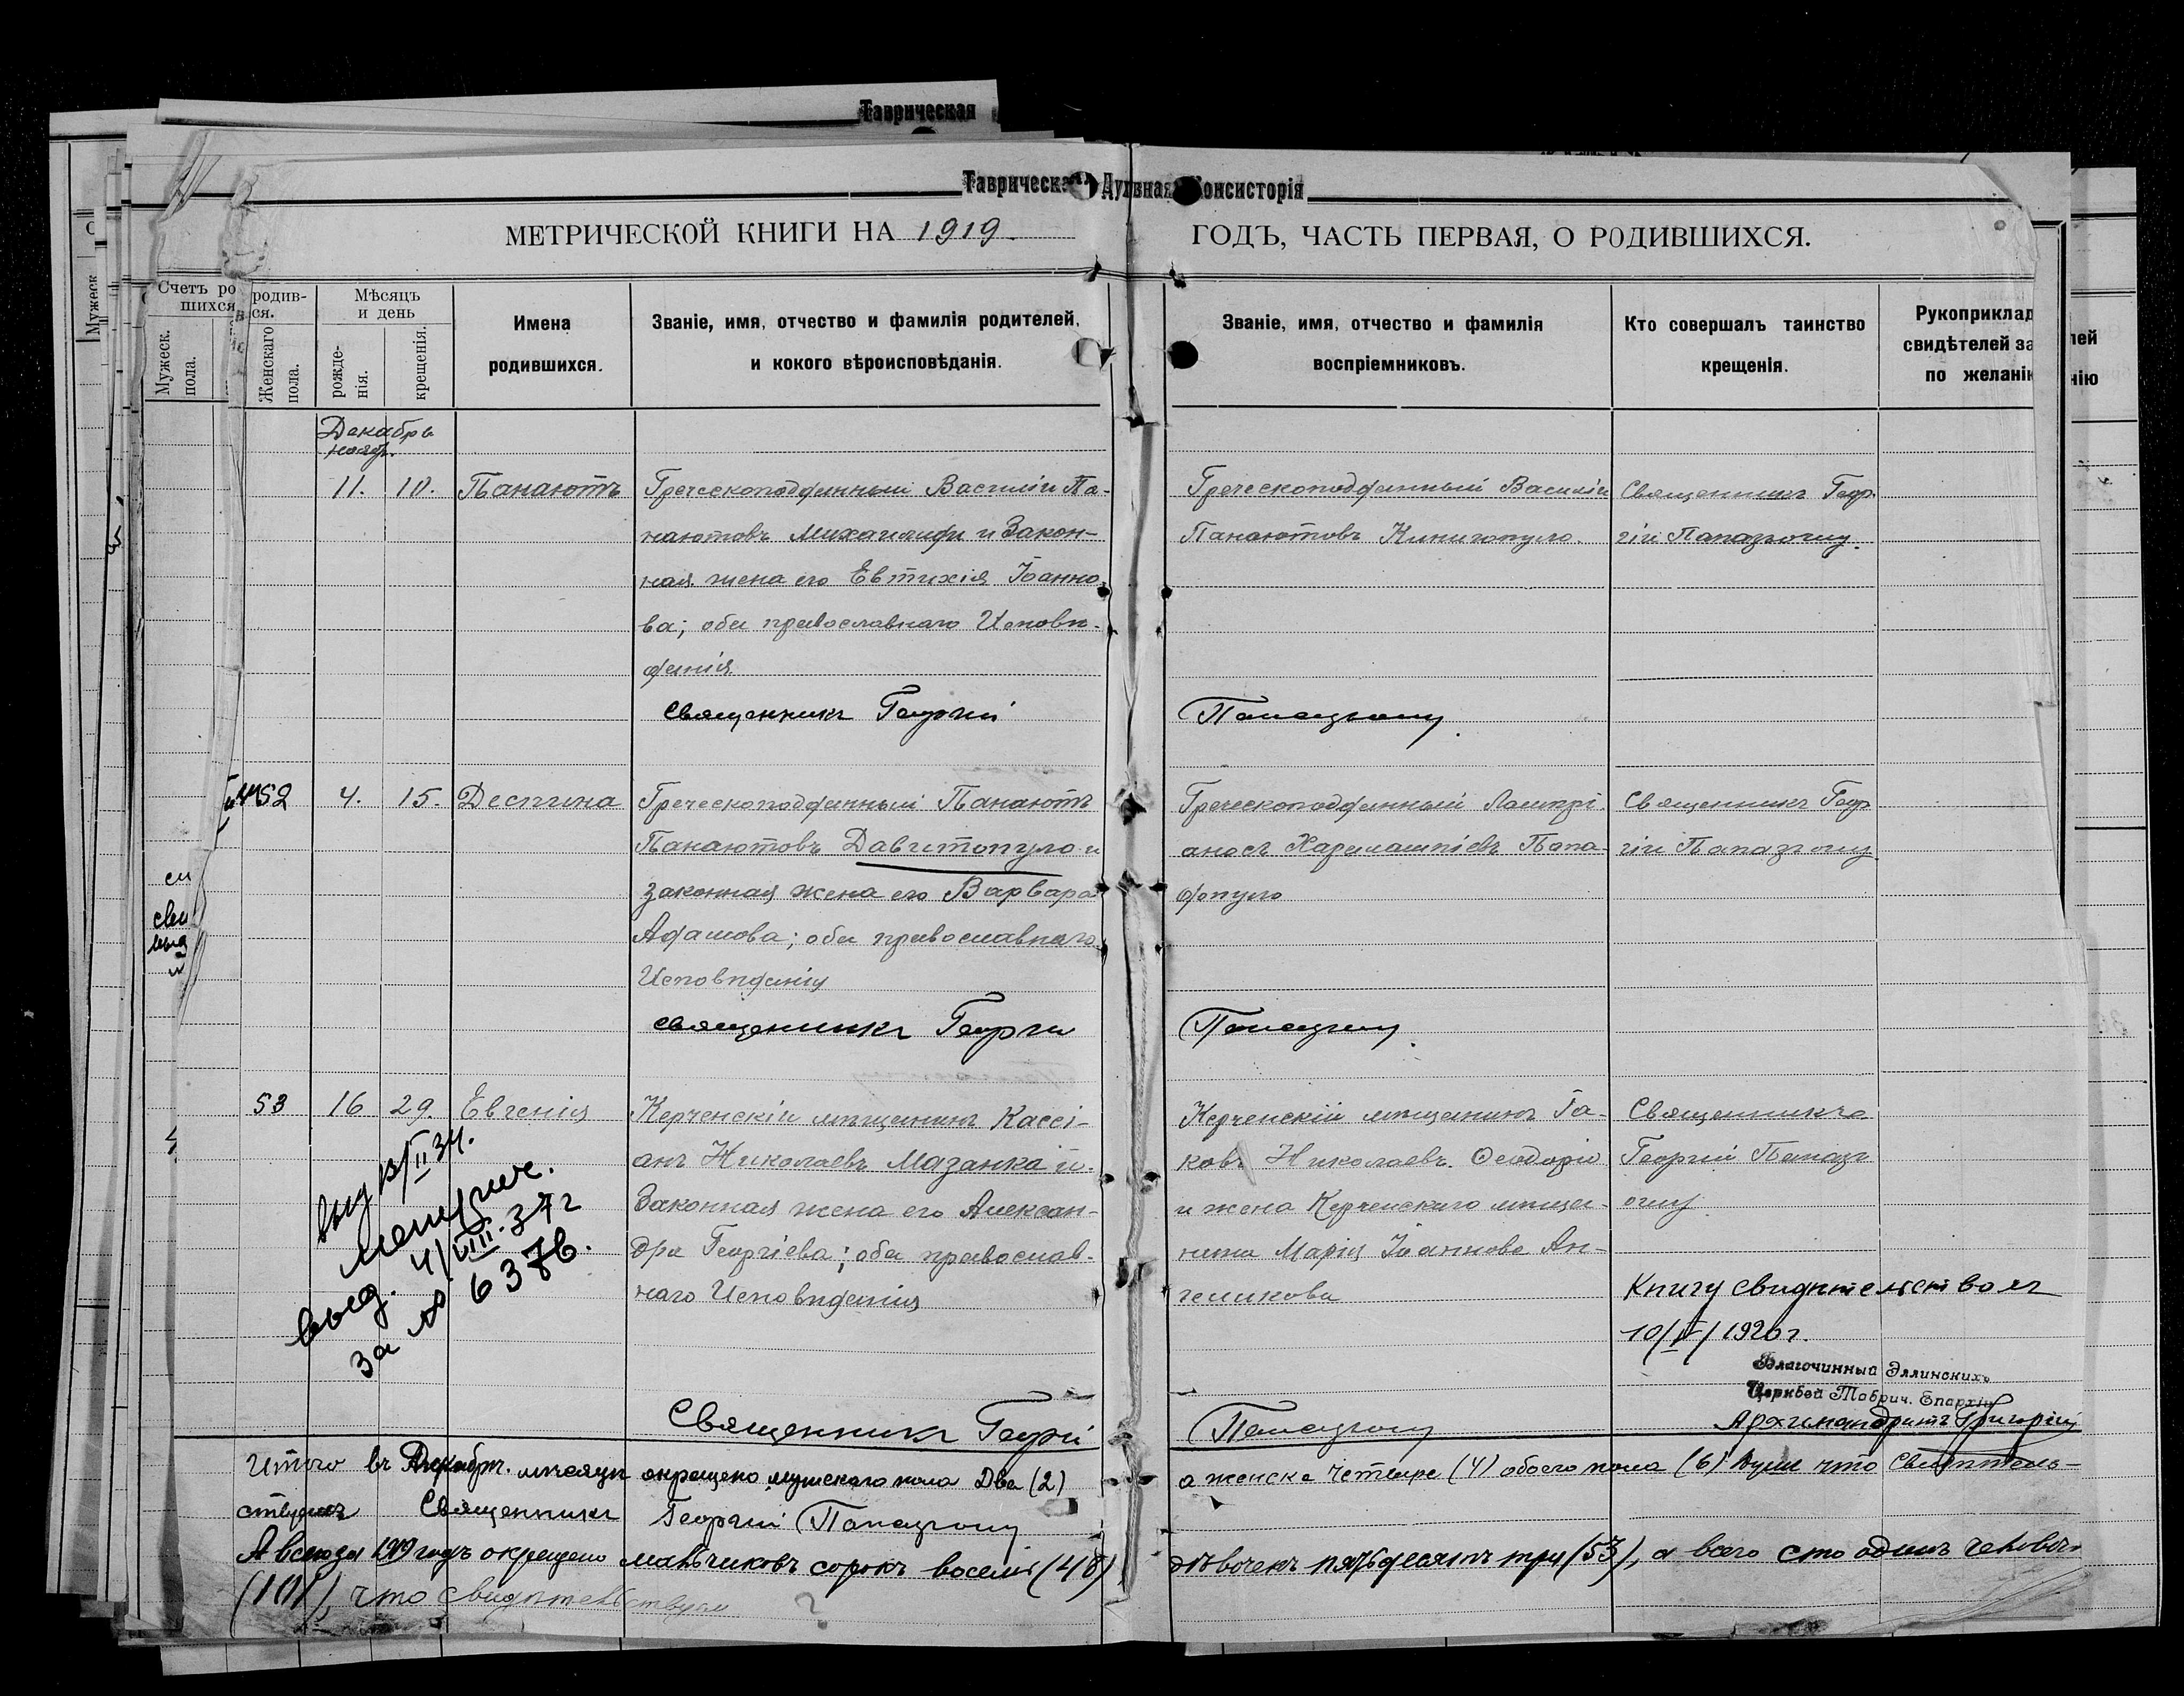 Таврическая
Таврическая Духвная Консисторія
МЕТРИЧЕСКОЙ КНИГИ НА 1919 ГОДЪ, ЧАСТЬ ПЕРВАЯ, О РОДИВШИХСЯ.
Счетъ ро
шихся
Мужеск.
пола.
родив-
ся.
Женскаго
пола.
Мѣсяцъ
и день
рожде-
нія.
крещенія.
Имена
родившихся.
Званіе, имя, отчество и фамилія родителей,
и кокого вѣроисповѣданія.
Званіе, имя, отчество и фамилія
воспріемниковъ.
Кто совершалъ таинство
крещенія.
Рукоприклад
свидѣтелей за
по желані
Декабрь
11. 10. Панаютъ
Греческоподданный Василій Па-
наютовъ и Закон-
ная жена его Евтихія Іоанно-
ва; оба православнаго Исповѣ-
данія
Греческоподданный Василій
Панаютовъ
Священникъ Геор-
гій Папазъогну.
Священникъ Георгій Папазъогну.
52 4. 15. Деспина
Греческоподданный Панаютъ
Панаютовъ Давитопуло и
законная жена его Варвара
Адамова; оба православнаго
Исповѣданія
Греческоподданный Лампрі-
аносъ Харалампіевъ Папа-
допуло
Священникъ Геор-
гій Папазъогну
Священникъ Георги Папазъогну.
53 16 29. Евгенія
Керченскій мѣщанинъ Кассі-
анъ Николаевъ Мазанка и
Законная жена его Алексан-
дра Георгіева; оба православ-
наго Исповѣданія
Керченскій мѣщанинъ Іа-
ковъ Николаевъ Ѳеодори
и жена Керченскаго мѣща-
нина Марія Іоаннова Ан-
геликова
Священникъ
Георгій Папазъ
огну
выд
выд. 4/VIII.37г
за № 6376.
Книгу свидѣтельствовалъ
10/IV/1920 г.
Благочинный Эллинскихъ
Церквей Таврич. Епархіи
Архимандритъ Григорій
Священникъ Георгій Папазъогну
Итого въ Декабрѣ мѣсяцѣ окрещено мужескаго пола Два (2) а женска четыре (4) обоего пола (6) душъ что Свидѣтель-
ствуетъ Священникъ Георгій Папазъогну
А всего за 1919 годъ окрещено мальчиковъ сорокъ восемь (48) дѣвочекъ пятьдесятъ три (53), а всего сто одинъ человѣкъ
(101), что свидѣтельствуемъ